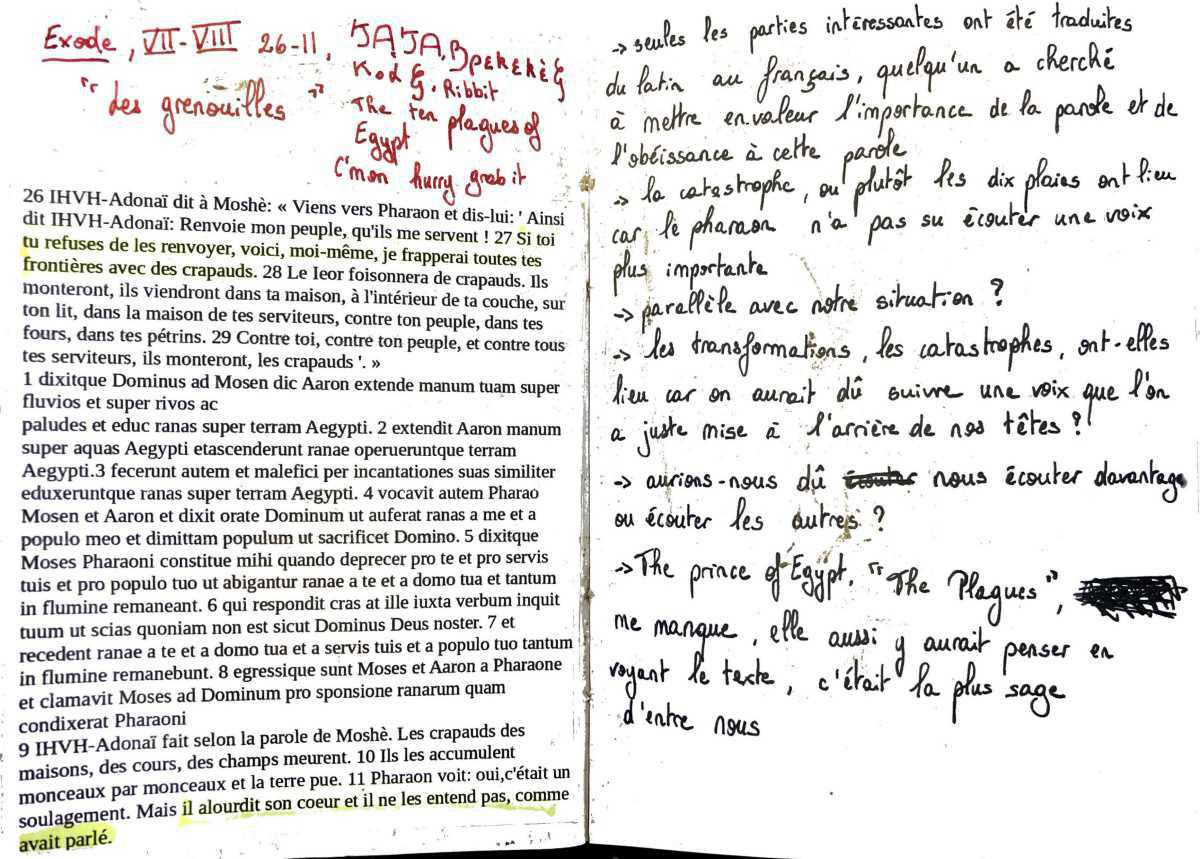 Exode, VII-VIII 26-11,
"Les grenouilles"
JAJA, BρεκεκὲΞ
ΚοάΞ. Ribbit
The ten plagues of
Egypt
C'mon hurry grab it
26 IHVH-Adonaï dit à Moshè: « Viens vers Pharaon et dis-lui: ' Ainsi
dit IHVH-Adonaï: Renvoie mon peuple, qu'ils me servent ! 27 Si toi
tu refuses de les renvoyer, voici, moi-même, je frapperai toutes tes
frontières avec des crapauds. 28 Le Ieor foisonnera de crapauds. Ils
monteront, ils viendront dans ta maison, à l'intérieur de ta couche, sur
ton lit, dans la maison de tes serviteurs, contre ton peuple, dans tes
fours, dans tes pétrins. 29 Contre toi, contre ton peuple, et contre tous
tes serviteurs, ils monteront, les crapauds '. »
1 dixitque Dominus ad Mosen dic Aaron extende manum tuam super
fluvios et super rivos ac
paludes et educ ranas super terram Aegypti. 2 extendit Aaron manum
super aquas Aegypti etascenderunt ranae operueruntque terram
Aegypti.3 fecerunt autem et malefici per incantationes suas similiter
eduxeruntque ranas super terram Aegypti. 4 vocavit autem Pharao
Mosen et Aaron et dixit orate Dominum ut auferat ranas a me et a
populo meo et dimittam populum ut sacrificet Domino. 5 dixitque
Moses Pharaoni constitue mihi quando deprecer pro te et pro servis
tuis et pro populo tuo ut abigantur ranae a te et a domo tua et tantum
in flumine remaneant. 6 qui respondit cras at ille iuxta verbum inquit
tuum ut scias quoniam non est sicut Dominus Deus noster. 7 et
recedent ranae a te et a domo tua et a servis tuis et a populo tuo tantum
in flumine remanebunt. 8 egressique sunt Moses et Aaron a Pharaone
et clamavit Moses ad Dominum pro sponsione ranarum quam
condixerat Pharaoni
9 IHVH-Adonaï fait selon la parole de Moshè. Les crapauds des
maisons, des cours, des champs meurent. 10 Ils les accumulent
monceaux par monceaux et la terre pue. 11 Pharaon voit: oui,c'était un
soulagement. Mais il alourdit son coeur et il ne les entend pas, comme
avait parlé.
-> seules les parties intéressantes ont été traduites
du latin au français, quelqu'un a cherché
à mettre en valeur l'importance de la parole et de
l'obéissance à cette parole
-> la catastrophe, ou plutôt les dix plaies ont lieu
car le pharaon n'a pas su écouter une voix
plus importante
-> parallèle avec notre situation ?
-> les transformations, les catastrophes, ont-elles
lieu car on aurait dû suivre une voix que l'on
a juste mise à l'arrière de nos têtes ?
-> aurions-nous dû écouter nous écouter davantage
ou écouter les autres ?
-> The prince of Egypt, "The Plagues",
me manque, elle aussi y aurait penser en
voyant le texte, c'était la plus sage
d'entre nous